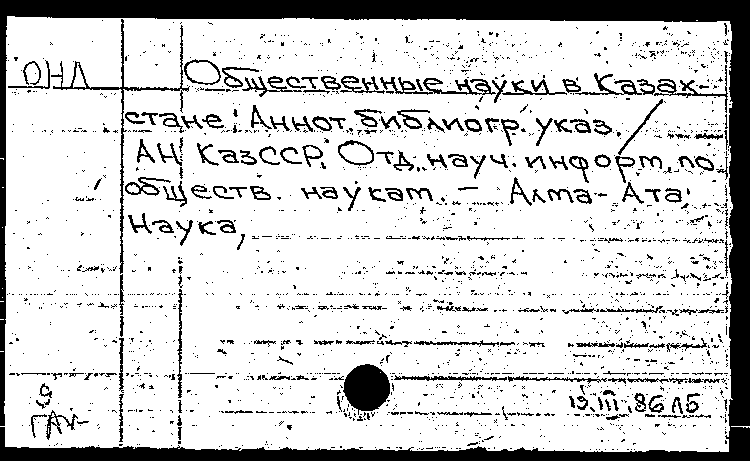 ОНЛ
Общественные науки в Казах-
стане: Аннот. библиогр. указ. /
АН КазССР. Отд. науч. информ. по
обществ. наукам. – Алма-Ата:
Наука,
9
13.III.86 Л5